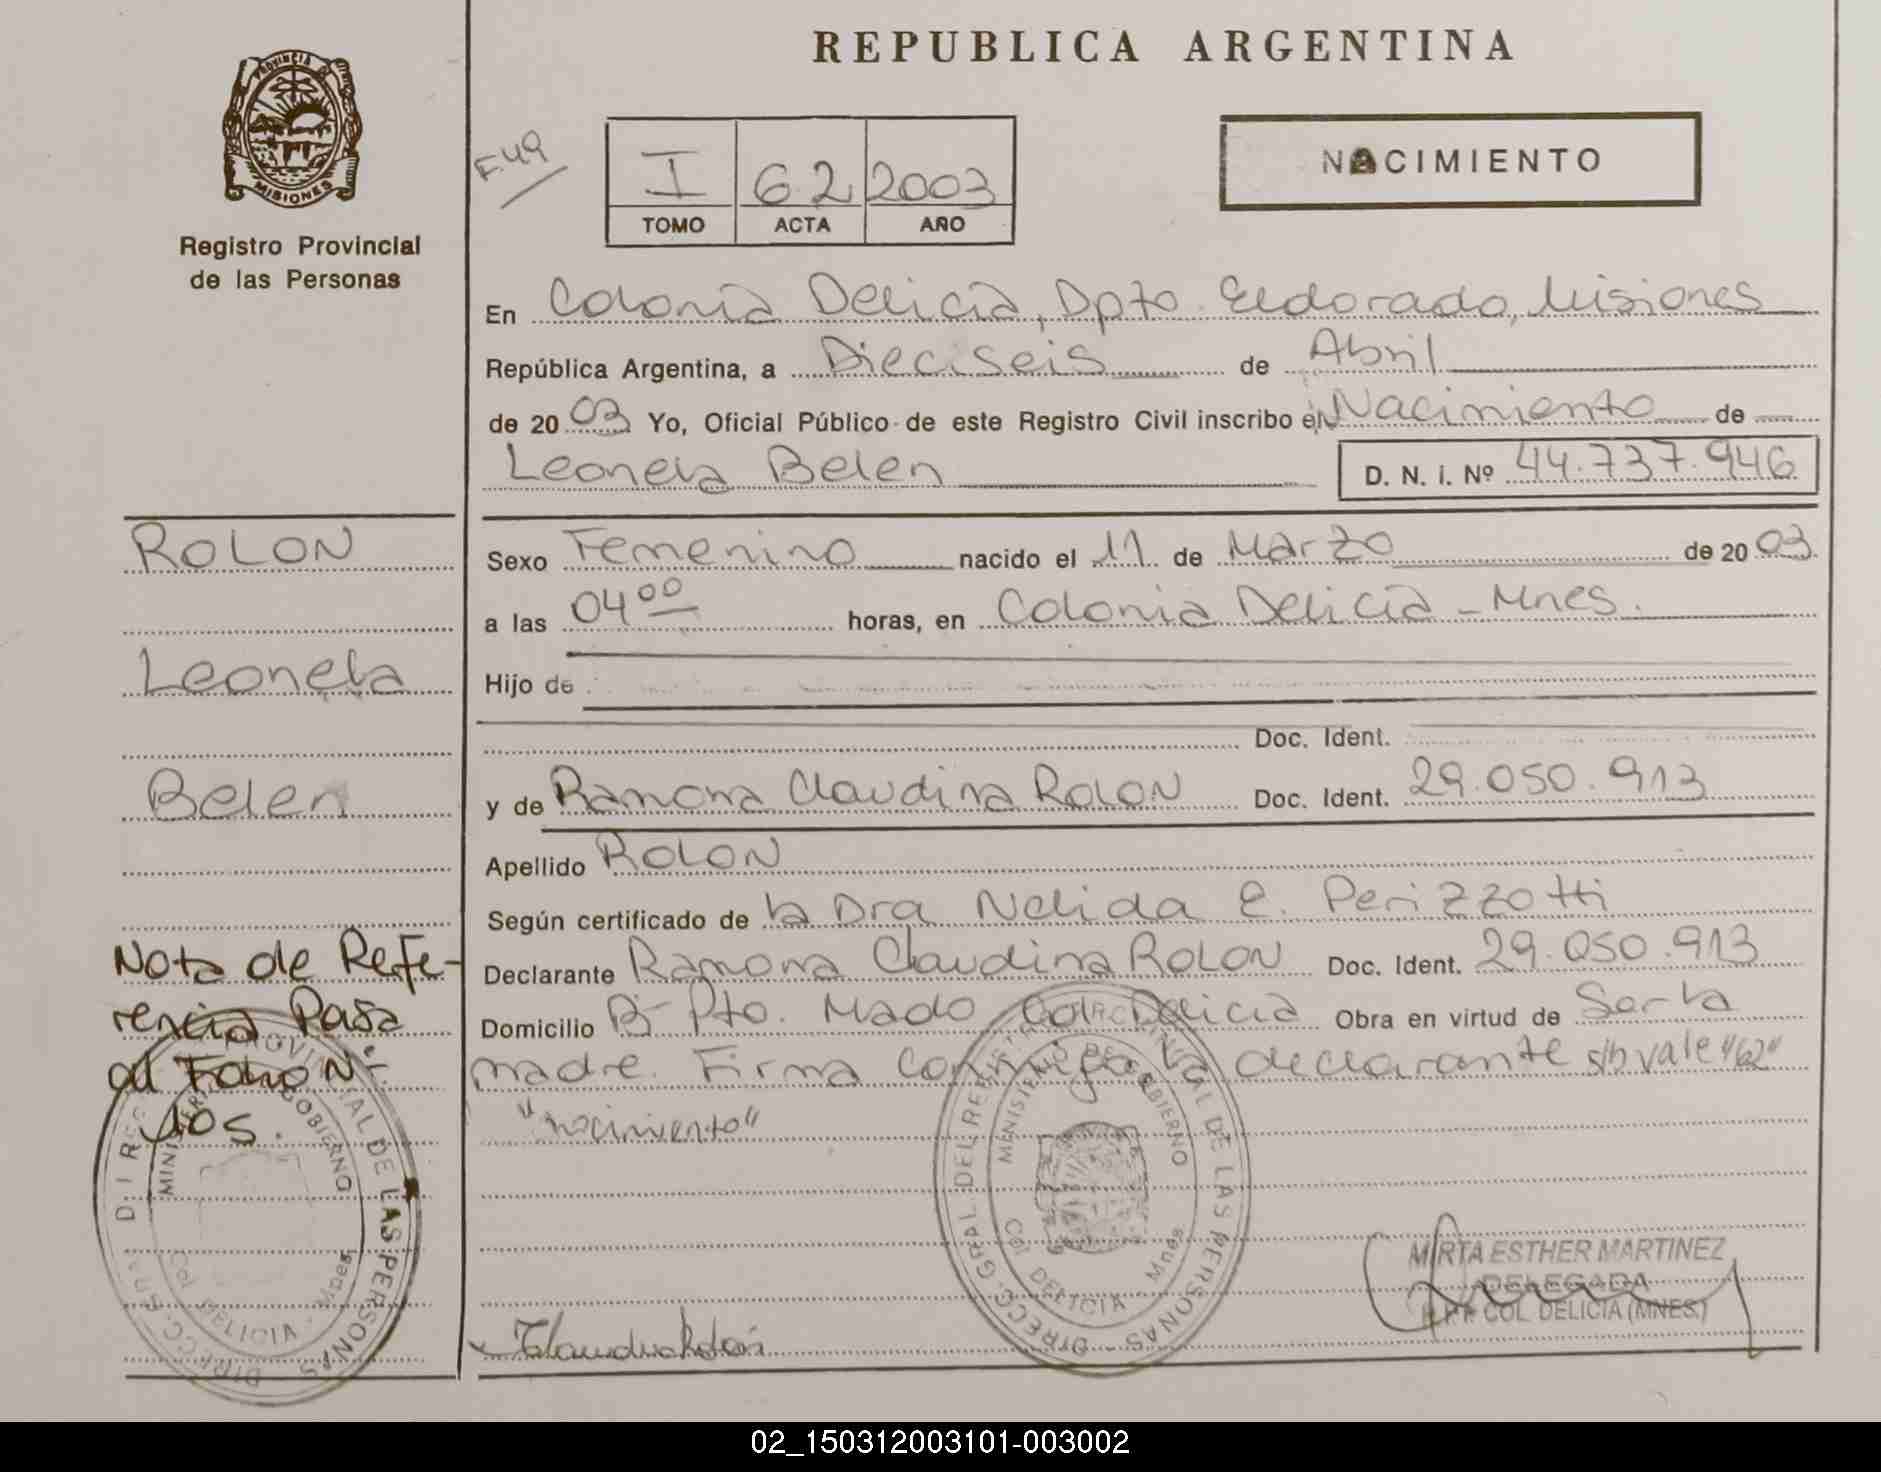 REPUBLICA ARGENTINA
PROVINCIA DE
MISIONES
Registro Provincial
de las Personas
F.49
I 62 2003
TOMO ACTA AÑO
NACIMIENTO
En Colonia Delicia, Dpto. Eldorado, Misiones
República Argentina, a Dieciseis de Abril
de 2003 Yo, Oficial Público de este Registro Civil inscribo el Nacimiento de
Leonela Belen D. N. I. Nº 44.737.946
ROLON
Leonela
Belen
Sexo Femenino nacido el 11 de Marzo de 2003
a las 04 00 horas, en Colonia Delicia - Mnes.
Hijo de
Doc. Ident.
y de Ramona Claudina ROLON Doc. Ident. 29.050.913
Apellido ROLON
Según certificado de la Dra Nelida E. Perizzotti
Declarante Ramona Claudina ROLON Doc. Ident. 29.050.913
Domicilio Bº Pto. Mado Col. Delicia Obra en virtud de Ser la
madre. Firma Conmigo la declarante s/b vale "62"
"nacimiento"
Nota de Refe-
rencia Pasa
al Folio Nº
105.
DIRECC. GRAL. DEL REGISTRO PROVINCIAL DE LAS PERSONAS
MINISTERIO DE GOBIERNO
Col. DELICIA - Mnes
PROVINCIAL DE LAS PERSONAS
MINISTERIO GOBIERNO
Col DELICIA - Mnes
MIRTA ESTHER MARTINEZ
DELEGADA
R.P.P. COL. DELICIA (MNES.)
02_150312003101-003002